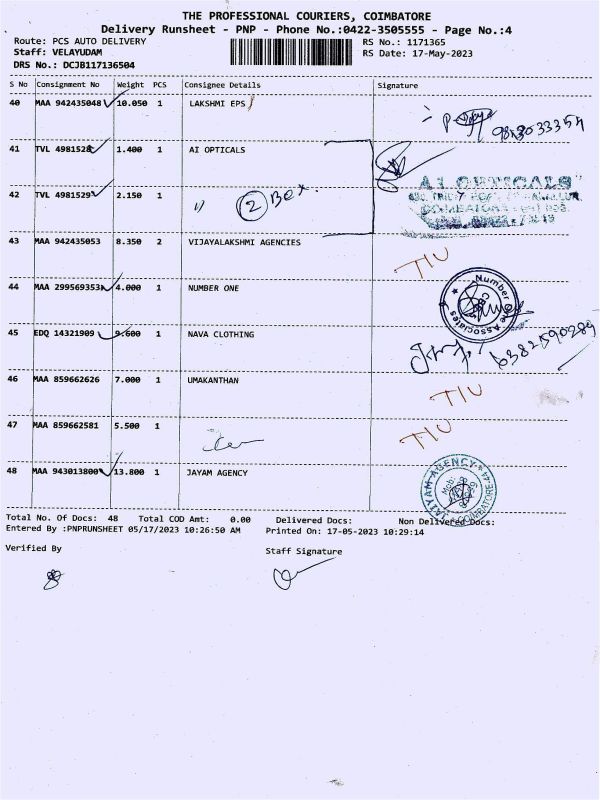 THE PROFESSIONAL COURIERS, COIMBATORE
Delivery Runsheet - PNP - Phone No.:0422-3505555 - Page No.:4
Route: PCS AUTO DELIVERY RS No.: 1171365
Staff: VELAYUDAM RS Date: 17-May-2023
DRS No.: DCJB117136504
S No Consignment No Weight PCS Consignee Details Signature
40 MAA 942435048 10.050 1 LAKSHMI EPS
41 TVL 4981528 1.400 1 AI OPTICALS
A I OPTICALS
42 TVL 4981529 2.150 1 " 2 Box.
43 MAA 942435053 8.350 2 VIJAYALAKSHMI AGENCIES TIU
44 MAA 299569353 4.000 1 NUMBER ONE
Number One Associates
45 EDQ 14321909 9.600 1 NAVA CLOTHING 6382590289
46 MAA 859662626 7.000 1 UMAKANTHAN TIU
47 MAA 859662581 5.500 1 TIU
48 MAA 943013800 13.800 1 JAYAM AGENCY
JAIYAM AGENCY COIMBATORE
Total No. Of Docs: 48 Total COD Amt: 0.00 Delivered Docs: Non Delivered Docs:
Entered By :PNPRUNSHEET 05/17/2023 10:26:50 AM Printed On: 17-05-2023 10:29:14
Verified By Staff Signature